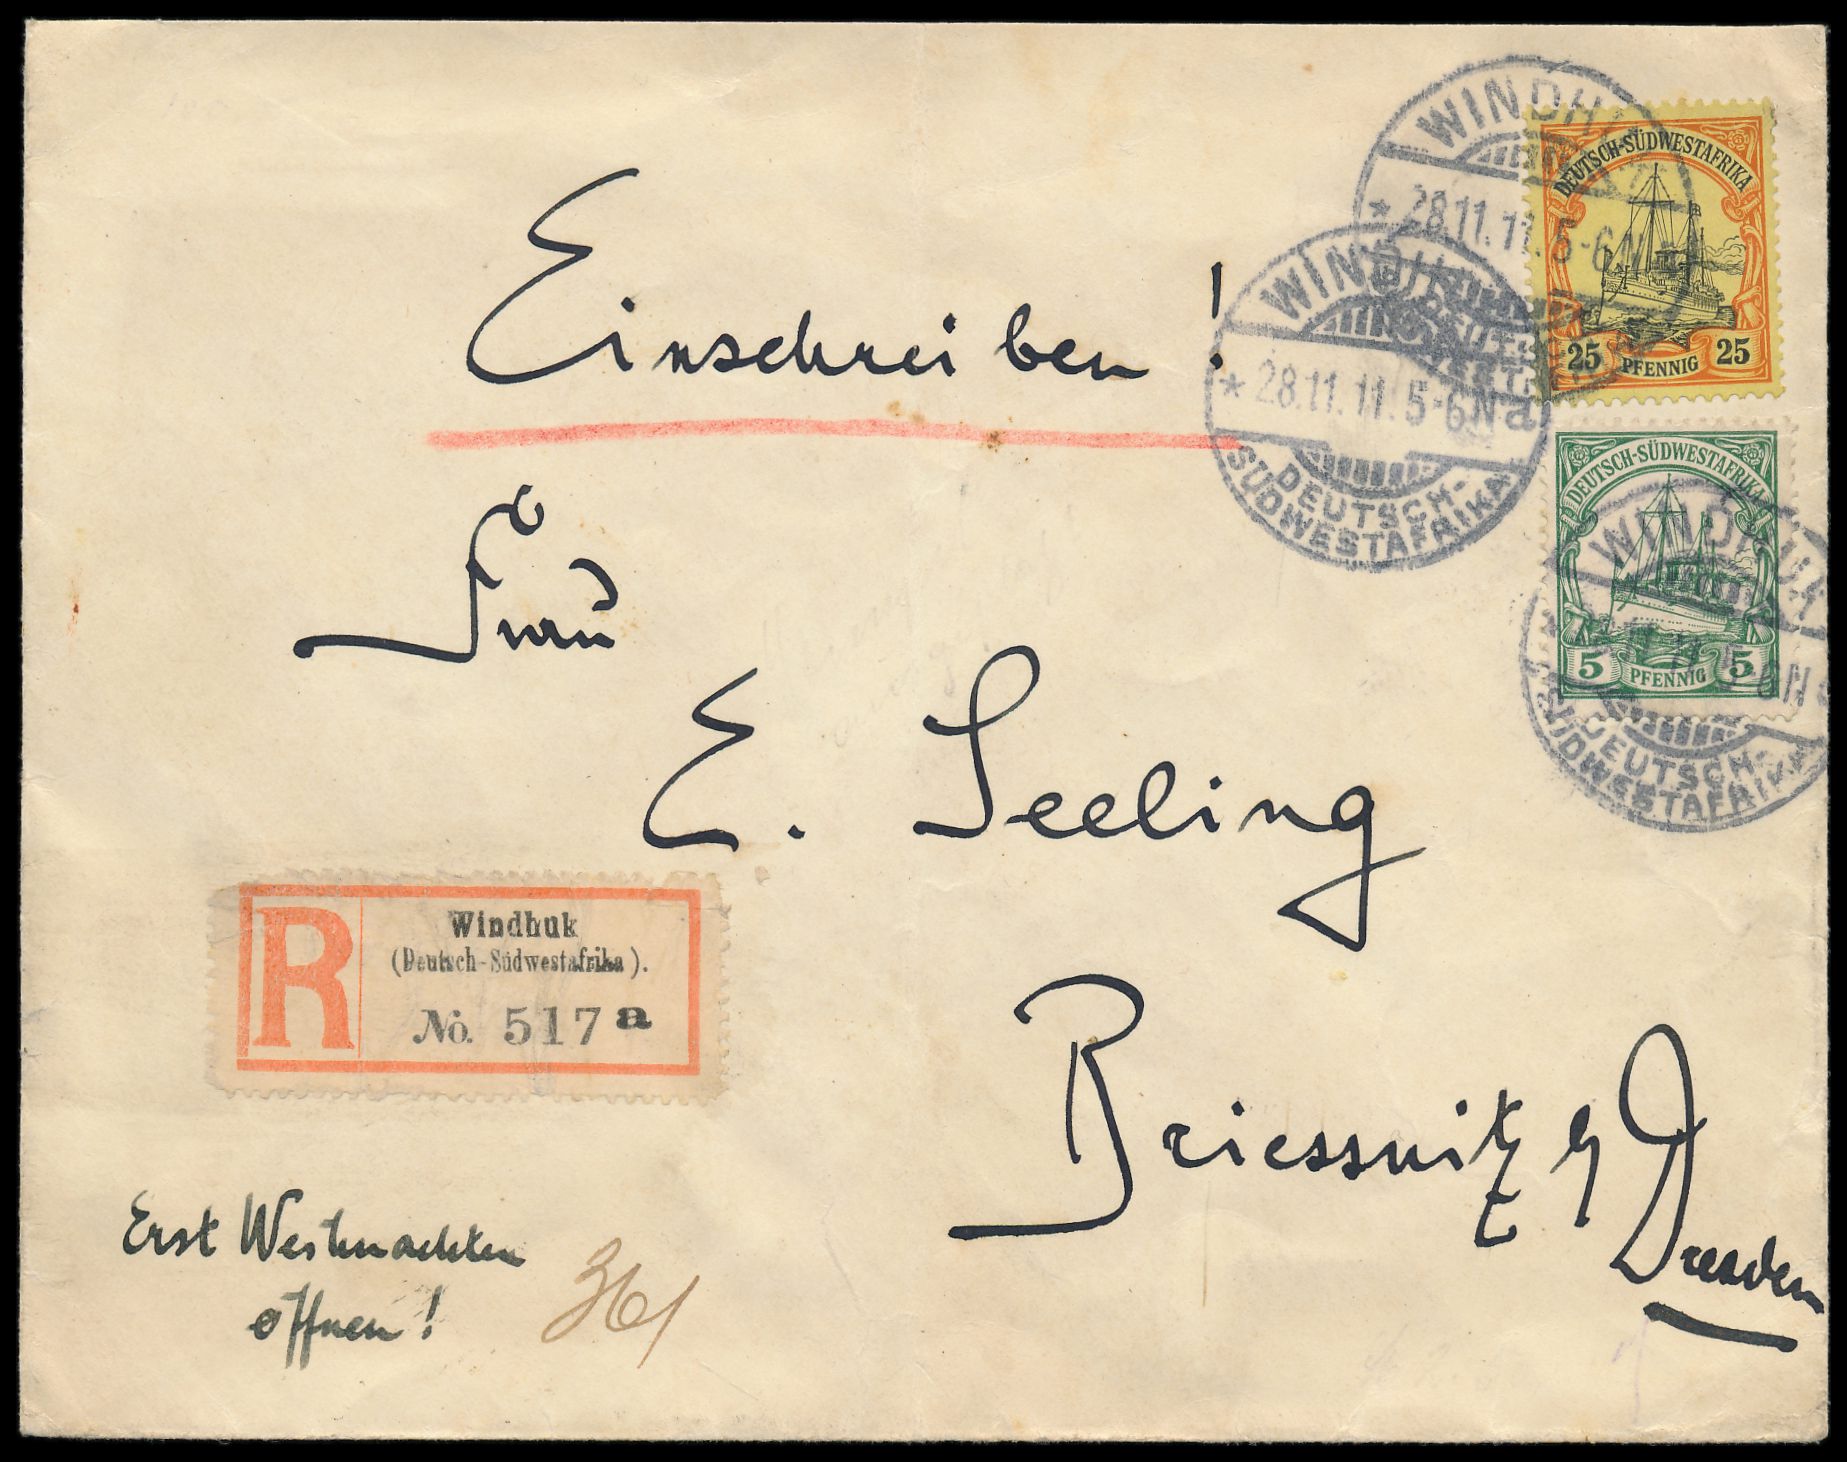 Einschreiben!
Frau
E. Seeling
Briessnitz
Dresden
Erst Weihnachten
öffnen!
361
R
Windhuk
(Deutsch-Südwestafrika).
No. 517 a
DEUTSCH-SÜDWESTAFRIKA
25 PFENNIG 25
DEUTSCH-SÜDWESTAFRIKA
5 PFENNIG 5
WINDHUK
* 28.11.11. 5-6N
WINDHUK
* 28.11.11. 5-6N a
DEUTSCH-
SÜDWESTAFRIKA
WINDHUK
DEUTSCH-
SÜDWESTAFRIKA